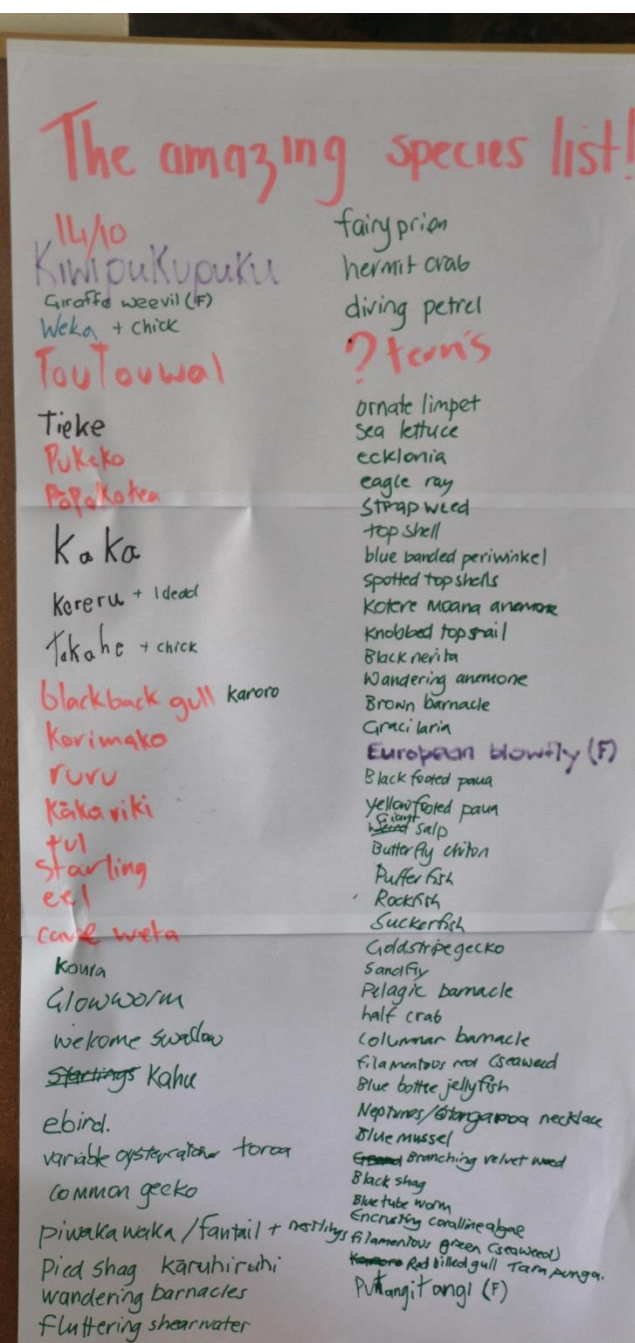 The amazing species list!
14/10
Kiwipukupuku
Giraffe weevil (F)
Weka + chick
TouTouwai
Tieke
Pukeko
Popokotea
Kaka
Kereru + 1 dead
Takahe + chick
blackback gull karoro
Korimako
ruru
Kākāriki
tui
starling
eel
cave weta
Koura
Glowworm
welcome swallow
Startings Kahu
ebird.
variable oystercatcher torea
common gecko
piwakawaka/fantail + nestlings
Pied shag karuhiruhi
wandering barnacles
fluttering shearwater
fairy prion
hermit crab
diving petrel
? tern's
ornate limpet
sea lettuce
ecklonia
eagle ray
strap weed
top shell
blue banded periwinkel
spotted topshells
Kotere moana anemone
Knobbed topsnail
Black nerita
Wandering anemone
Brown barnacle
Gracilaria
European blowfly (F)
Black footed paua
yellow footed paua
Giant salp
Butterfly chiton
Puffer fish
Rockfish
Suckerfish
Goldstripe gecko
Sandfly
Pelagic barnacle
half crab
columnar barnacle
filamentous red (seaweed
Blue bottle jellyfish
Neptunes/ necklace
Blue mussel
Branching velvet weed
Black shag
Blue tube worm
Encrusting coralline algae
filamentous green (seaweed)
Red billed gull Tarapunga.
Putangitangi (F)